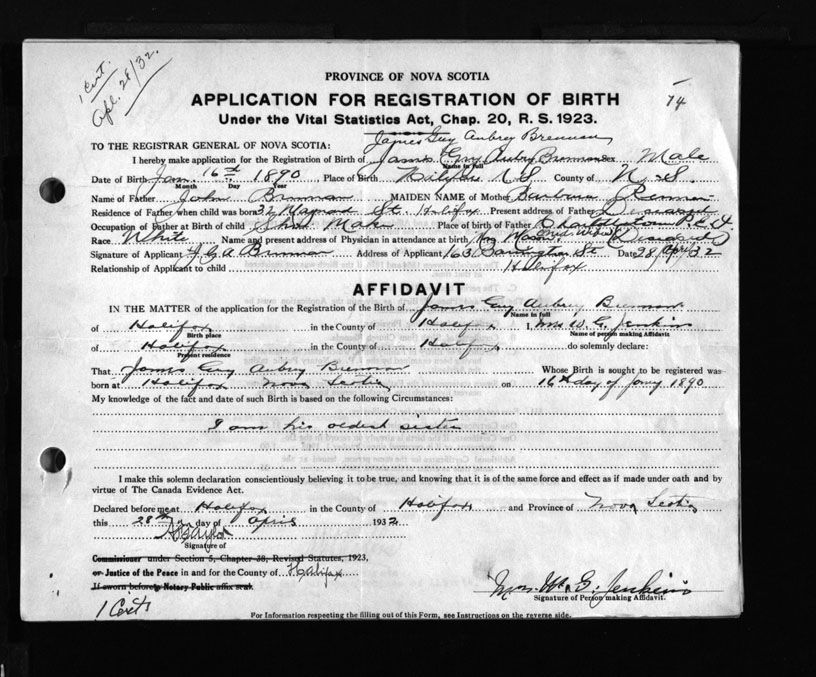 1 Cert.
Apl. 28/32.
PROVINCE OF NOVA SCOTIA
APPLICATION FOR REGISTRATION OF BIRTH
74
Under the Vital Statistics Act, Chap. 20, R. S. 1923.
James Guy Aubrey Brennan
TO THE REGISTRAR GENERAL OF NOVA SCOTIA:
I hereby make application for the Registration of Birth of James Guy Aubry Brennan Sex Male
Name in full
Date of Birth Jan. 16th 1890 Place of Birth N.S. County of N.S.
Month Day Year
Name of Father John Brennan MAIDEN NAME of Mother Barbara
Residence of Father when child was born 32 St. Halifax Present address of Father Deceased
Occupation of Father at Birth of child Place of birth of Father P.E.I.
Race White Name and present address of Physician in attendance at birth Mrs (Deceased)
Signature of Applicant J G A Brennan Address of Applicant 163 Barrington St Date 28 Apr 32
Relationship of Applicant to child Halifax
AFFIDAVIT
IN THE MATTER of the application for the Registration of the Birth of James Guy Aubrey Brennan
Name in full
of Halifax in the County of Halifax I, Mrs W. G. Jenkins
Birth place Name of person making Affidavit
of Halifax in the County of Halifax do solemnly declare:
Present residence
That James Guy Aubry Brennan Whose Birth is sought to be registered was
born at Halifax Nova Scotia on 16th day of Jany 1890
My knowledge of the fact and date of such Birth is based on the following Circumstances:
I am his oldest sister
I make this solemn declaration conscientiously believing it to be true, and knowing that it is of the same force and effect as if made under oath and by
virtue of The Canada Evidence Act.
Declared before me at Halifax in the County of Halifax and Province of Nova Scotia
this 28th day of April 1932
Signature of
Commissioner under Section 5, Chapter 38, Revised Statutes, 1923,
or Justice of the Peace in and for the County of Halifax
If sworn before a Notary Public affix seal.
Mrs. W. G. Jenkins
Signature of Person making Affidavit.
1 Cert
For Information respecting the filling out of this Form, see Instructions on the reverse side.